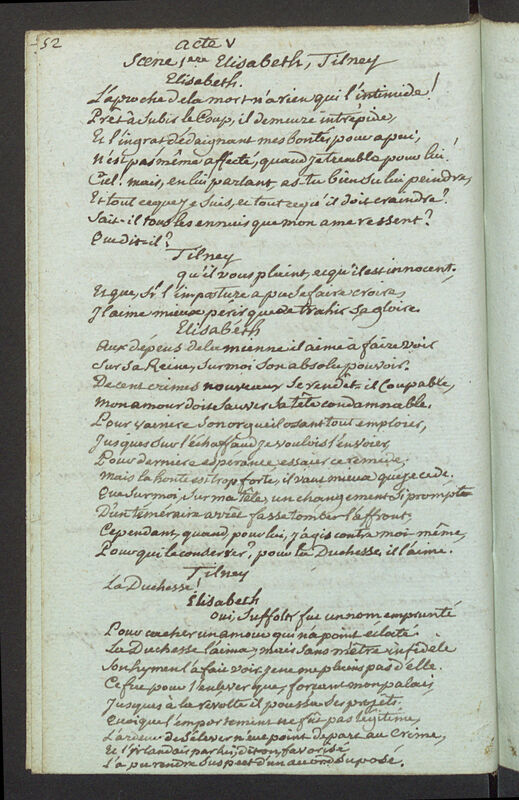 52
acte V
Scene 1ere Elisabeth, Tilney
Elisabeth.
L'aproche de la mort n'a rien qui l'intimide!
Prêt à subir le Coup, il demeure intrépide,
Et l'ingrat dédaignant mes bontés pour apui,
N'est pas même affecté, quand je tremble pour lui!
Ciel! mais, en lui parlant, as-tu bien su lui peindre,
Et tout ce que je suis, et tout ce qu'il doit craindre?
Sait-il tous les ennuis que mon ame ressent?
Que dit-il?
Tilney
qu'il vous plaint, et qu'il est innocent.
Et que, si l'imposture a pu se faire croire,
Il aime mieux périr que de trahir sa gloire.
Elisabeth
Aux dépens de la mienne il aime à faire voir
Sur sa Reine, sur moi son absolu pouvoir.
De cent crimes nouveaux se rendît-il Coupable,
Mon amour doit sauver sa tête condamnable.
Pour vaincre son orgueil osant tout employer,
Jusques sur l'échaffaud je voulois l'envoyer
Pour derniere esperance essaier ce remede;
Mais la honte est trop forte, il vaut mieux que je cede.
Que sur moi, sur ma tête, un changement si prompt
D'un téméraire arrêt fasse tomber l'affront.
Cependant, quand pour lui, j'agis contre moi-même,
Pour qui le conserver? pour la Duchesse, il l'aime.
Tilney
La Duchesse!
Elisabeth
oui, Suffolk fut un nom emprunté
Pour cacher un amour qui n'a point eclaté
La Duchesse l'aima, mais sans m'être infidele
Son hymen l'a fait voir, je ne me plains pas d'elle.
Ce fut pour l'enlever que, forceant mon palais
Jusques à la révolte il poussa ses projets.
Quoique l'emportement ne fût pas légitime,
L'ardeur de s'élever n'eut point de part au Crime,
Et l'irlandais par lui, dit on, favorisé
L'a pu rendre suspect d'un accord suposé.